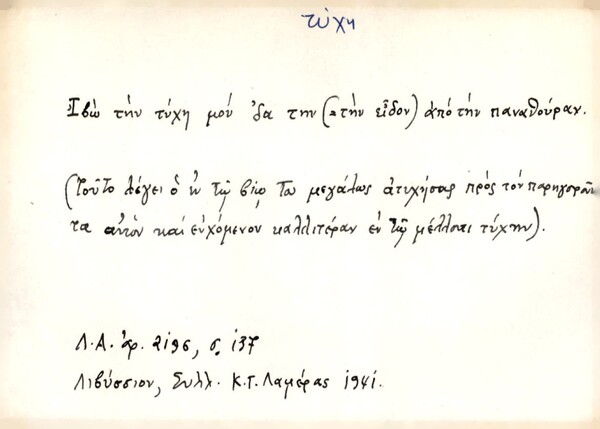 τύχη
Ἰβὼ τὴν τύχη μού 'δα την (=τὴν εἶδον) ἀπό τὴν παναθούραν.
(Τοῦτο λέγει ὁ ἐν τῷ βίῳ του μεγάλως ἀτυχήσας πρὸς τὸν παρηγοροῦν
τα αὐτὸν καὶ εὐχόμενον καλλιτέραν ἐν τῷ μέλλοντι τύχην).
Λ.Α. ἀρ. 2196, σ. 137
Λιβύσσιον, Συλλ. Κ.Γ. Λαμέρας 1941.